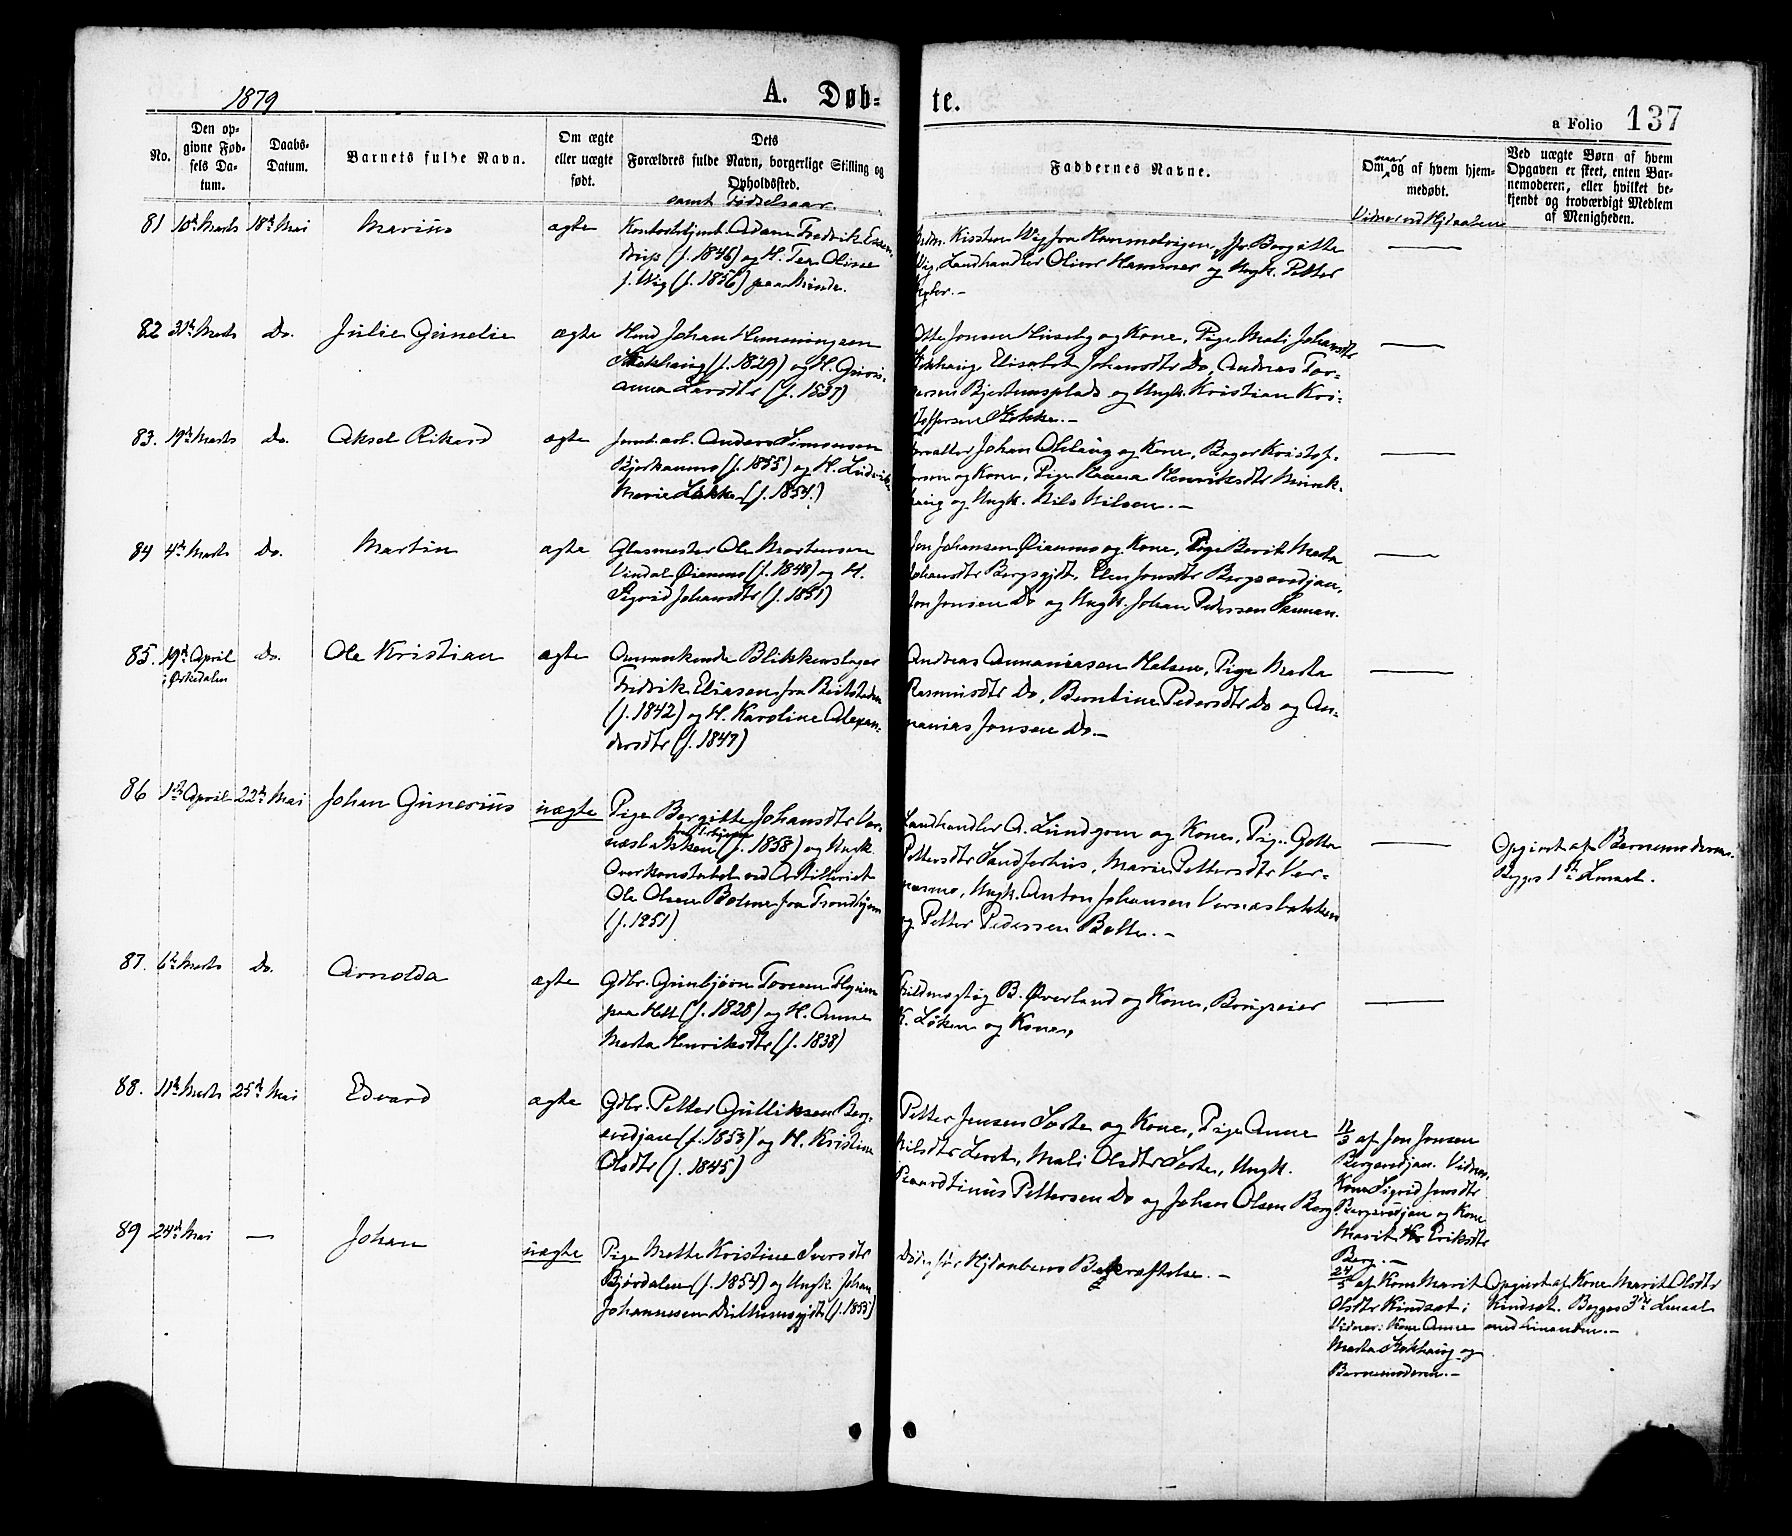 1879
A. Døb-
te.
a Folio 137
No.
Den op-
givne Fød-
sels Da-
tum.
Daabs-
Datum.
Barnets fulde Navn.
Om ægte
eller uægte
født.
Dets
Forældres fulde Navn, borgerlige Stilling og
Opholdssted.
samt Fødselsaar.
Faddernes Navne.
Om naar og af hvem hjem-
medøbt.
Vidner ved Hjdaaben
Ved uægte Børn af hvem
Opgaven er skeet, enten Bar-
nemoderen, eller hvilket be-
kjendt og troværdigt Medlem
af Menigheden.
81 10de Marts 18de Mai Marius ægte
Adam Fredrik
(f. 1846) og H. Tea Oline
J. Wig (f. 1856) paa
Kirsten Wig fra Hammelvigen, Bergitte
Wig, Landhandler Oliver Hammer og Ungk. Petter
82 31te Marts Do. Julie Gunelie ægte
Johan Hemmingsen
Stokhaug (f. 1829) og H.
anna Larsdtr (f. 1837)
Jonsen Huseby og Kone, Pige Mali Johansdtr
Stokhaug, Elisabet Johansdtr Do, Andreas Tor-
Bjertemsplads og Ungk. Kristian Kri-
stoffersen Stokke.-
83. 19de Marts Do. Aksel Rikard ægte
Anders Simonsen
Bjørkanmo (f. 1855) og H. Ludvikke
Marie Løkke (f. 1854.)
Johan Olshaug og Kone, Bager Kristof-
fersen og Kone, Pige Hanna Henriksdtr Munk-
haug og Ungk. Nils Nilsen.-
84 4de Marts Do. Martin ægte
Glasmester Ole Mortensen
Vindal Øianmo (f. 1848) og H.
Sigrid Johansdtr (f. 1851)
Jon Johansen Øianmo og Kone, Pige Berit Marta
Johansdtr Bergsgjdt, Elen Jonsdtr Bergsvedjan,
Jon Jonsen Do og Ungk. Johan Pedersen
85. 19de April Do. Ole Kristian ægte
i Ørkedalen
Omvankende Blikkenslager
Fredrik Eliasen fra Beitstaden
(f. 1842) og H. Karoline Alexan-
dersdtr (f. 1847)
Andreas Annaniasen Halsen, Pige Marta
Rasmusdtr Do, Berntine Pedersdtr Do og An-
nanias Jonsen Do.-
86 1ste April 22de Mai Johan Gunerius uægte
Pige Bergitte Johansdtr Ver-
næsbakken (f. 1858) og Ungk.
Overkonstabel ved Artilleriet
Ole Olsen Bolme fra Trondhjem
(f. 1851)
Landhandler A. Lundgren og Kone, Pige Gotta
Pettersdtr Sandferhus, Marie Pettersdtr Ver-
næsmo, Ungk. Anton Johansen Vernæsbakken
og Petter Pedersen Balte.-
Opgivet af Barnemoderen.
Begges 1ste Leiermaal.
87. 6te Marts Do. Arnolda ægte
Gdbr. Gunbjørn Toresen
paa Hell (f. 1828) og H. Anne
Marta Henriksdtr (f. 1838)
Fuldmægtig B. Øverland og Kone, Brugseier
K. Løken og Kone,
88. 11te Marts 25de Mai Edvard ægte
Gdbr. Petter Gulliksen Berg-
svedjan (f. 1853) og H. Kristine
Olsdtr (f. 1845)
Petter Jensen Sorte og Kone, Pige Anne
Nilsdtr Leret, Mali Olsdtr Sorte, Ungk.
Pettersen Do og Johan Olsen Berg
11/3 af Jon Jonsen
Bergsvedjan. Vidner,
Kone Sigrid Jonsdtr
Bergsvedjan og Kone
Marit Eriksdtr
Berg.-
89 24de Mai — Johan uægte
Pige Mette Kristine Iversdtr
Bjørdalen (f. 1854) og Ungk. Johan
Johannesen (f. 1855)
Død før Hjdaabens Bekræftelse.-
24/5 af Kone Marit
Olsdtr Kindsæt;
Vidner: Kone Anne
Marta Stokhaug og
Barnemoderen.-
Opgivet af Kone Marit Olsdtr
Kindsæt. Begges 3de Lmaal
med hinanden.-